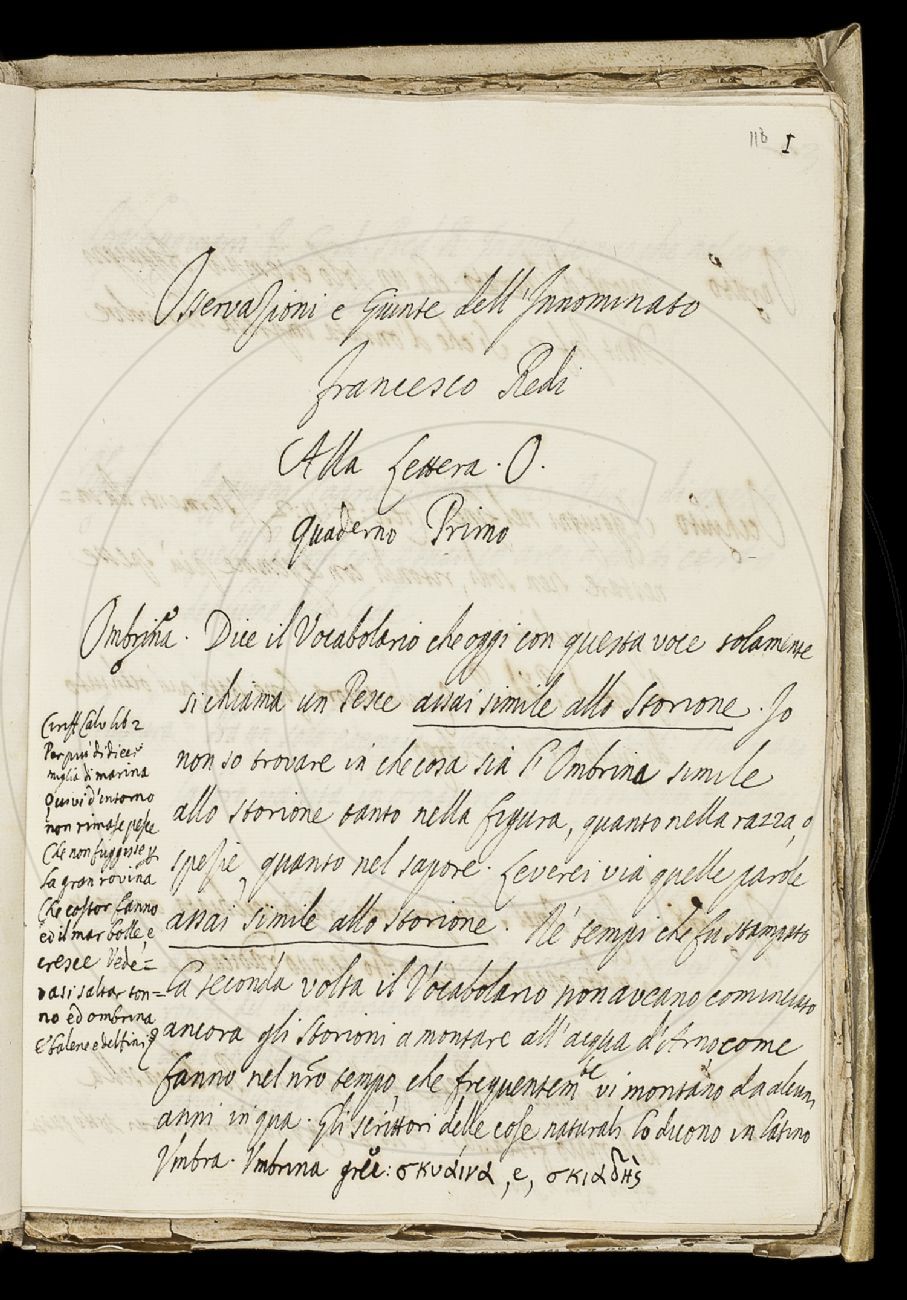 118 I
Osservazioni e Giunte dell'Innominato
Francesco Redi
Alla Lettera. O.
Quaderno Primo
Ombrina. Dice il Vocabolario che oggi con questa voce solamente
si chiama un Pesce assai simile allo Storione. Io
non so trovare in che cosa sia l'Ombrina simile
allo storione tanto nella figura, quanto nella razza, o
spezie, quanto nel sapore. Leverei via quelle parole
assai simile allo storione. Ne' tempi che fu stampato
la seconda volta il Vocabolario non aveano cominciato
ancora gli Storioni a montare all'acqua d'Arno, come
fanno nel nro tempo, che frequentemte vi montano da alcuni
anni in qua. Gli scrittori delle cose naturali lo dicono in latino
Umbra. Umbrina grec: σκυαινα, e, σκιαδης
Ciriff. Calv. lib 2
Per piu di dieci
miglia di marina
Quivi d'intorno
non rimase pesce
Che non fuggisse p
la gran rovina
Che costor fanno
ed il mar bolle, e
cresce Vede=
vasi saltar ton=
no ed ombrina
E balene e delfini